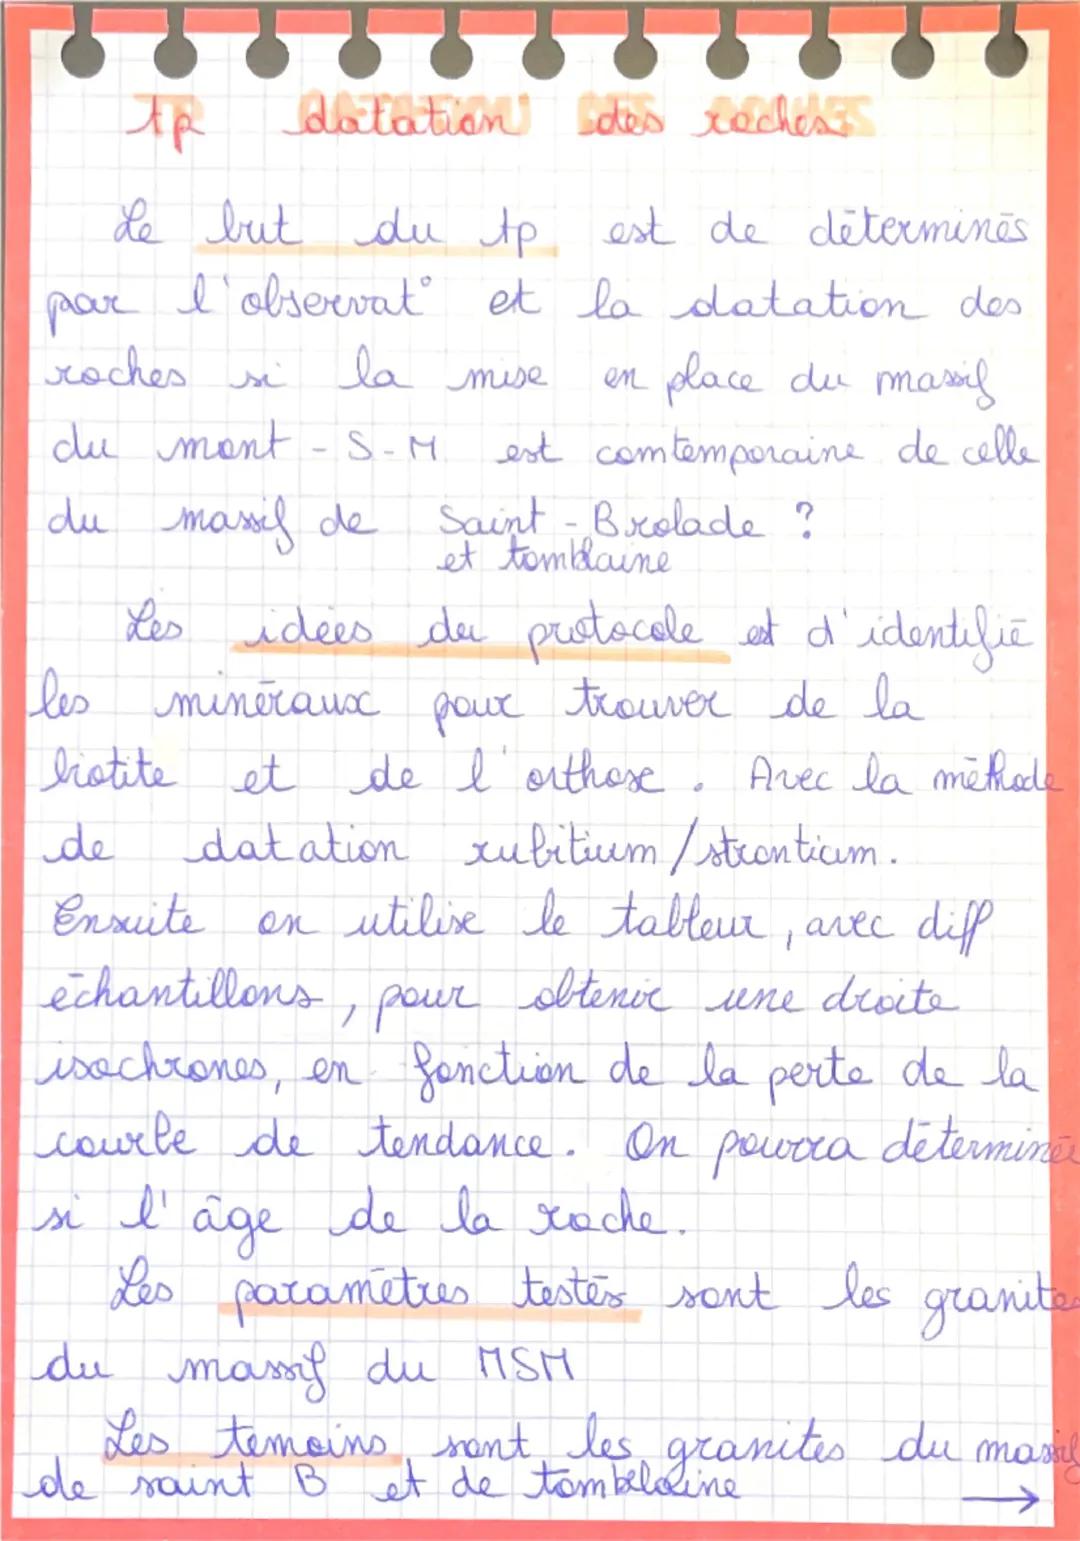 tp datation des roches
Le but du tp est de déterminés
par l'observat° et la datation des
roches si la mise en place du massif
du mont - S - M est comtemporaine de celle
du massif de Saint - Brolade ?
et tomblaine
Les idées du protocole est d'identifié
les minéraux pour trouver de la
biotite et de l'orthose. Avec la méthode
de datation rubitium/strontium.
Ensuite on utilise le tableur, avec diff
échantillons, pour obtenir une droite
isochrones, en fonction de la perte de la
courbe de tendance. On pourra déterminé
si l'âge de la roche.
Les paramètres testés sont les granites
du massif du MSM
Les temoins sont les granites du massif
de saint B et de tombelaine
→